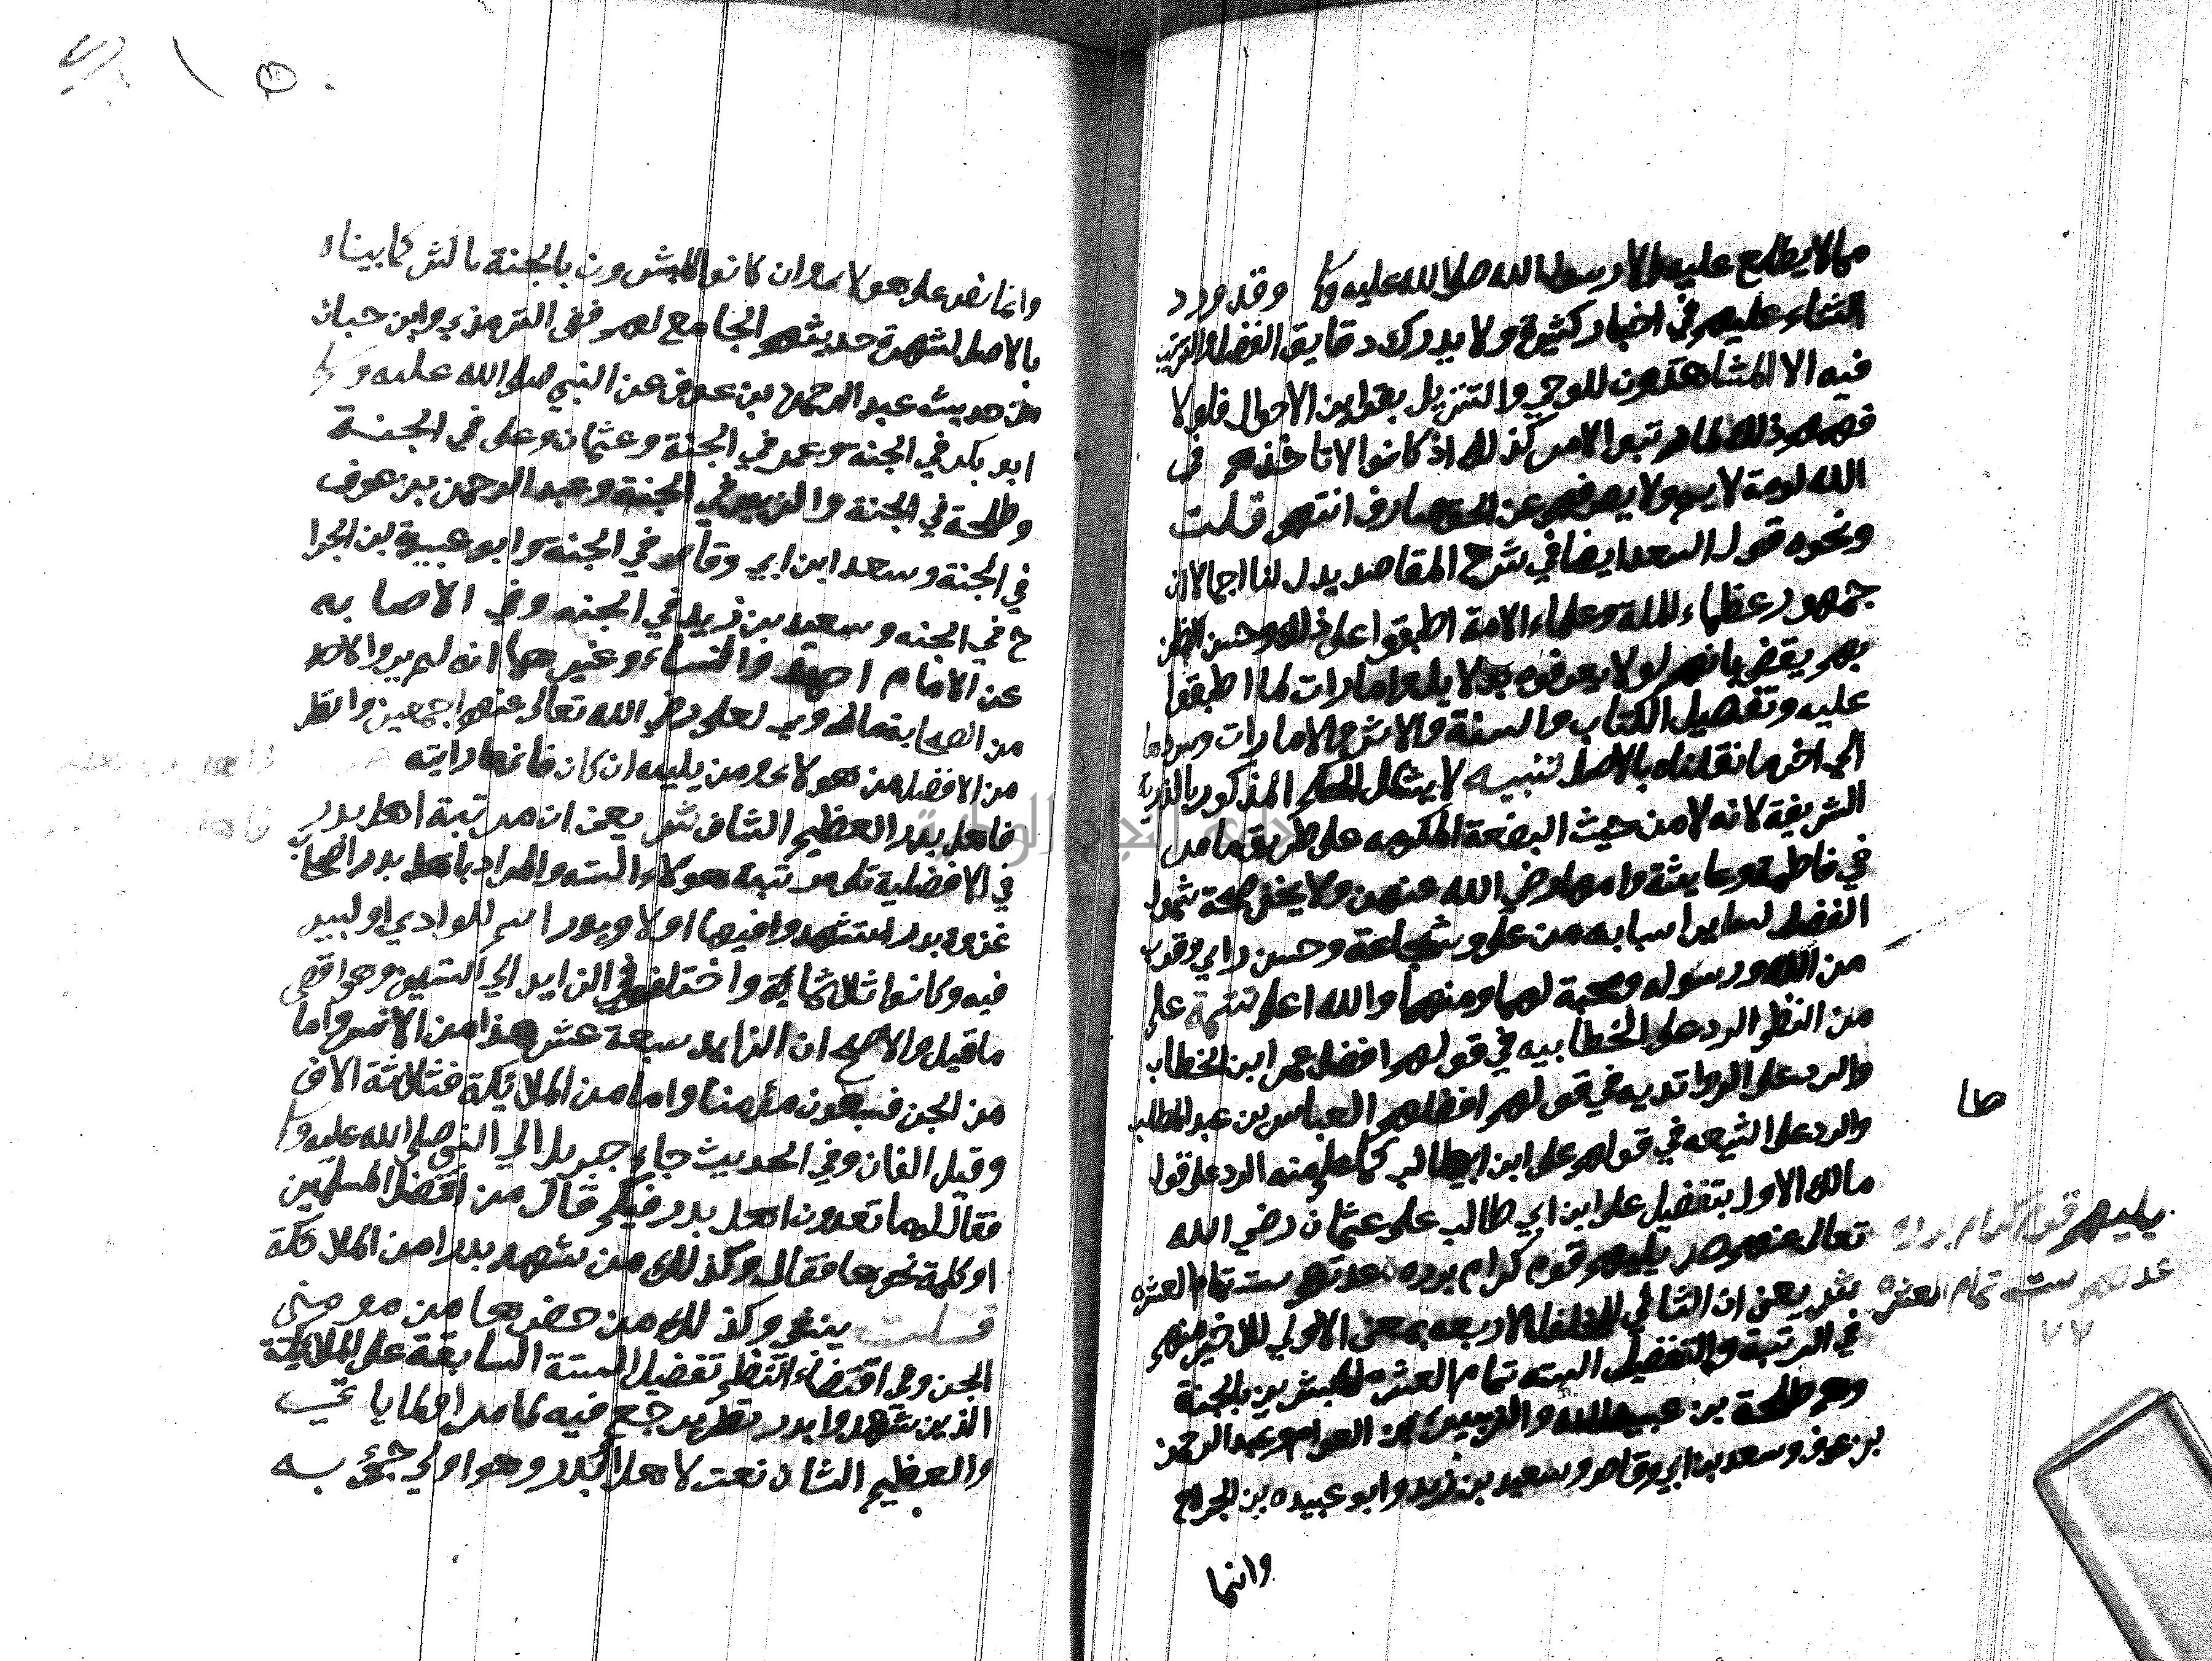 مما لا يطلع عليه الا رسول الله صلى الله عليه وقد ورد
الثناء عليهم في اخبار كثيرة ولا يدرك دقايق الفضل والترتيب
فيه الا المشاهدون للوحي والتنزيل بقراين الاحوال فلولا
فهمهم ذلك لما رتبوا الامر كذلك اذ كانوا لا تاخذهم في
الله لومة لايم ولا يصرفهم عن الحق صارف انتهى قلت
ونحوه قول السعد ايضا في شرح المقاصد يدل لنا اجمالا ان
جمهور عظماء الملة وعلماء الامة اطبقوا على ذلك وحسن الظن
بهم يقضي بانهم لو لا يعرفوه بدلايل وامارات لما اطبقوا
عليه وتفصيل الكتاب والسنة والاثر والامارات وسردها
الي اخر ما نقلناه بالاصل تنبيه لا يشكل الحكم المذكور بالذرية
الشريفة لانه لا من حيث البضعة المكرمه على طريق ما مر
في فاطمة وعايشة وامها رضي الله عنهن ولا يخفى صحة شمول
الفضل لساير اسبابه من علم وشجاعة وحسن راي وقرب
من الله ورسوله ومحبة لهما ومنهما والله اعلم تتمة علم
من النظم الرد على الخطابيه في قولهم افضل عمر ابن الخطاب
والرد على الراوندية في قولهم افضلهم العباس بن عبد المطلب
والرد على الشيعه في قولهم على ابن ابي طالب كما علم منه الرد على قول
مالك الاول بتفضيل على ابن ابي طالب على عثمان رضي الله
تعالى عنهم ص يليهم قوم كرام برره عدتهم ست تمام العشره
ش يعني ان التالي للخلفا الاربعه بمعنى الاولي للاخير منهم
في الرتبة والتفضيل الستة تمام العشره المبشرين بالجنة
وهم طلحة بن عبيد الله والزبير بن العوام وعبد الرحمن
بن عوف وسعد بن ابي وقاص وسعيد بن زيد وابو عبيده بن الجراح
وانما
يليهم قوم كرام برره
عدتهم ست تمام العشره
٧٧
١٥٠
وانما نص على هولا وان كانوا المبشرون بالجنة اكثر كما بيناه
بالاصل لشهرة حديثهم الجامع لهم ففي الترمذي وابن حبان
من حديث عبد الرحمن بن عوف عن النبي صلى الله عليه وسلم
ابو بكر في الجنة وعمر في الجنة وعثمان وعلى في الجنة
وطلحة في الجنة والزبير في الجنة وعبد الرحمن بن عوف
في الجنة وسعد ابن ابي وقاص في الجنة وابو عبيدة بن الجرا
ح في الجنه وسعيد بن زيد في الجنه وفي الاصابه
عن الامام احمد والنساء وغيرهما انه لم يرو لاحد
من الصحابة ما روي لعلى رضي الله تعالى عنهم اجمعين وانظر
من الافضل من هولاء ومن يليه ان كان فاني ما رايته
فاهل بدر العظيم الشان ش يعني ان مرتبة اهل بدر
في الافضلية تلى مرتبة هولاء الستة والمراد باهل بدر اصحاب
غزوة بدر استشهدوا فيها اولا وبدر اسم للوادي او لبير
فيه وكانوا ثلاثماية واختلف في الزايد الي الستين وهو اقصى
ما قيل والاصح ان الزايد سبعة عشر هذا من الانس واما
من الجن فسبعون مؤمنا واما من الملائكة فثلاثة الاف
وقيل الفان وفي الحديث جاء جبريل الي النبي صلى الله عليه وسلم
فقال له ما تعدون اهل بدر فيكم قال من افضل المسلمين
او كلمة نحوها فقال وكذلك من شهد بدرا من الملائكة
قلت ينبغي وكذلك من حضرها من مومني
الجن وفي اقتضاء النظم تفضيل الستة السابقة على الملائكة
الذين شهدوا بدر نظر يرجع فيه لما مر او لما ياتي
والعظيم الشان نعت لاهل بدر وهو اولي جئ به